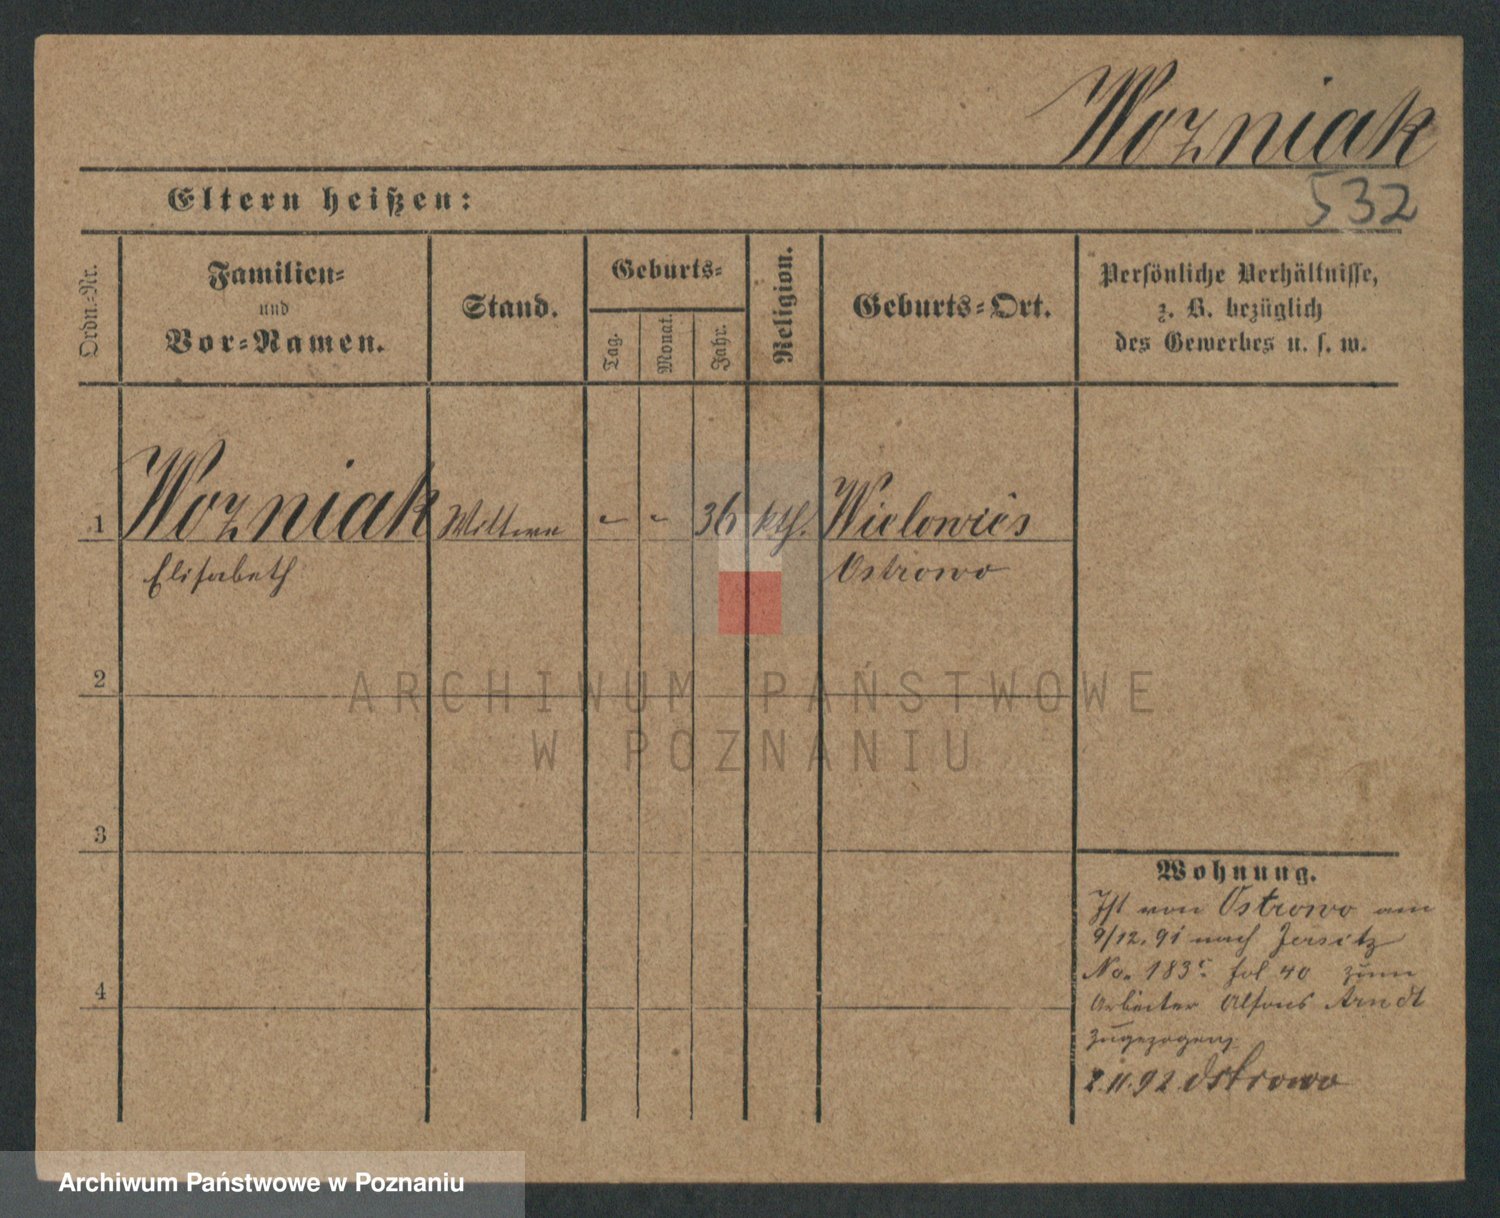 Wozniak
532
Eltern heißen:
Ordn.-Nr.
Familien-
und
Vor-Namen.
Stand.
Geburts-
Tag.
Monat.
Jahr.
Religion.
Geburts-Ort.
Persönliche Verhältnisse,
z. B. bezüglich
des Gewerbes u. s. w.
1 Wozniak Wittwe - - 36 kth. Wielowiés
Elisabeth Ostrowo
2
ARCHIWUM PAŃSTWOWE
W POZNANIU
3
Wohnung.
Ist von Ostrowo am
9/12.91 nach Jersitz
No. 183 fol 40 zum
Arbeiter Alfons Arndt
zugezogen
2.11.92 Ostrowo
4
Archiwum Państwowe w Poznaniu